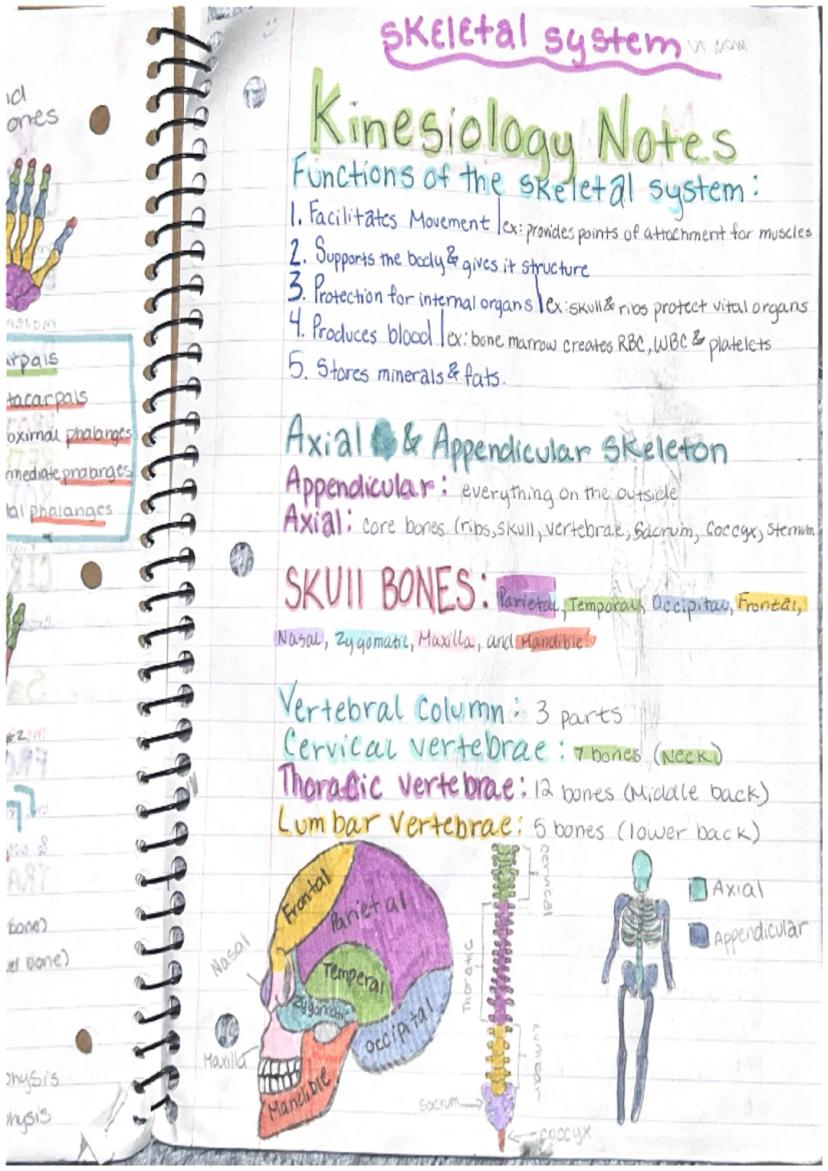 skeletal system
Kinesiology Notes
Functions of the skeletal system:
1. Facilitates Movement | ex: provides points of attachment for muscles
2. Supports the body & gives it structure
3. Protection for internal organs | ex: skull & ribs protect vital organs
4. Produces blood | ex: bone marrow creates RBC, WBC & platelets
5. Stores minerals & fats.
Axial & Appendicular Skeleton
Appendicular: everything on the outside
Axial: core bones (ribs, skull, vertebrae, Sacrum, Coccyx, Sternum
SKUll BONES: Parietal, Temporal, Occipital, Frontal,
Nasal, Zygomatic, Maxilla, and Mandible
Vertebral Column: 3 parts
Cervical vertebrae: 7 bones (Neck)
Thoracic vertebrae: 12 bones (Middle back)
Lumbar Vertebrae: 5 bones (lower back)
Frontal
Parietal
Nasal
Temperal
Zygomatic
Occipital
Maxilla
Mandible
cervical
Thoratic
Lumbar
Sacrum
coccyx
Axial
Appendicular
ones
tacarpals
oximal phalanges
rmediate phalanges
tal phalanges
bone)
bone)
physis
physis